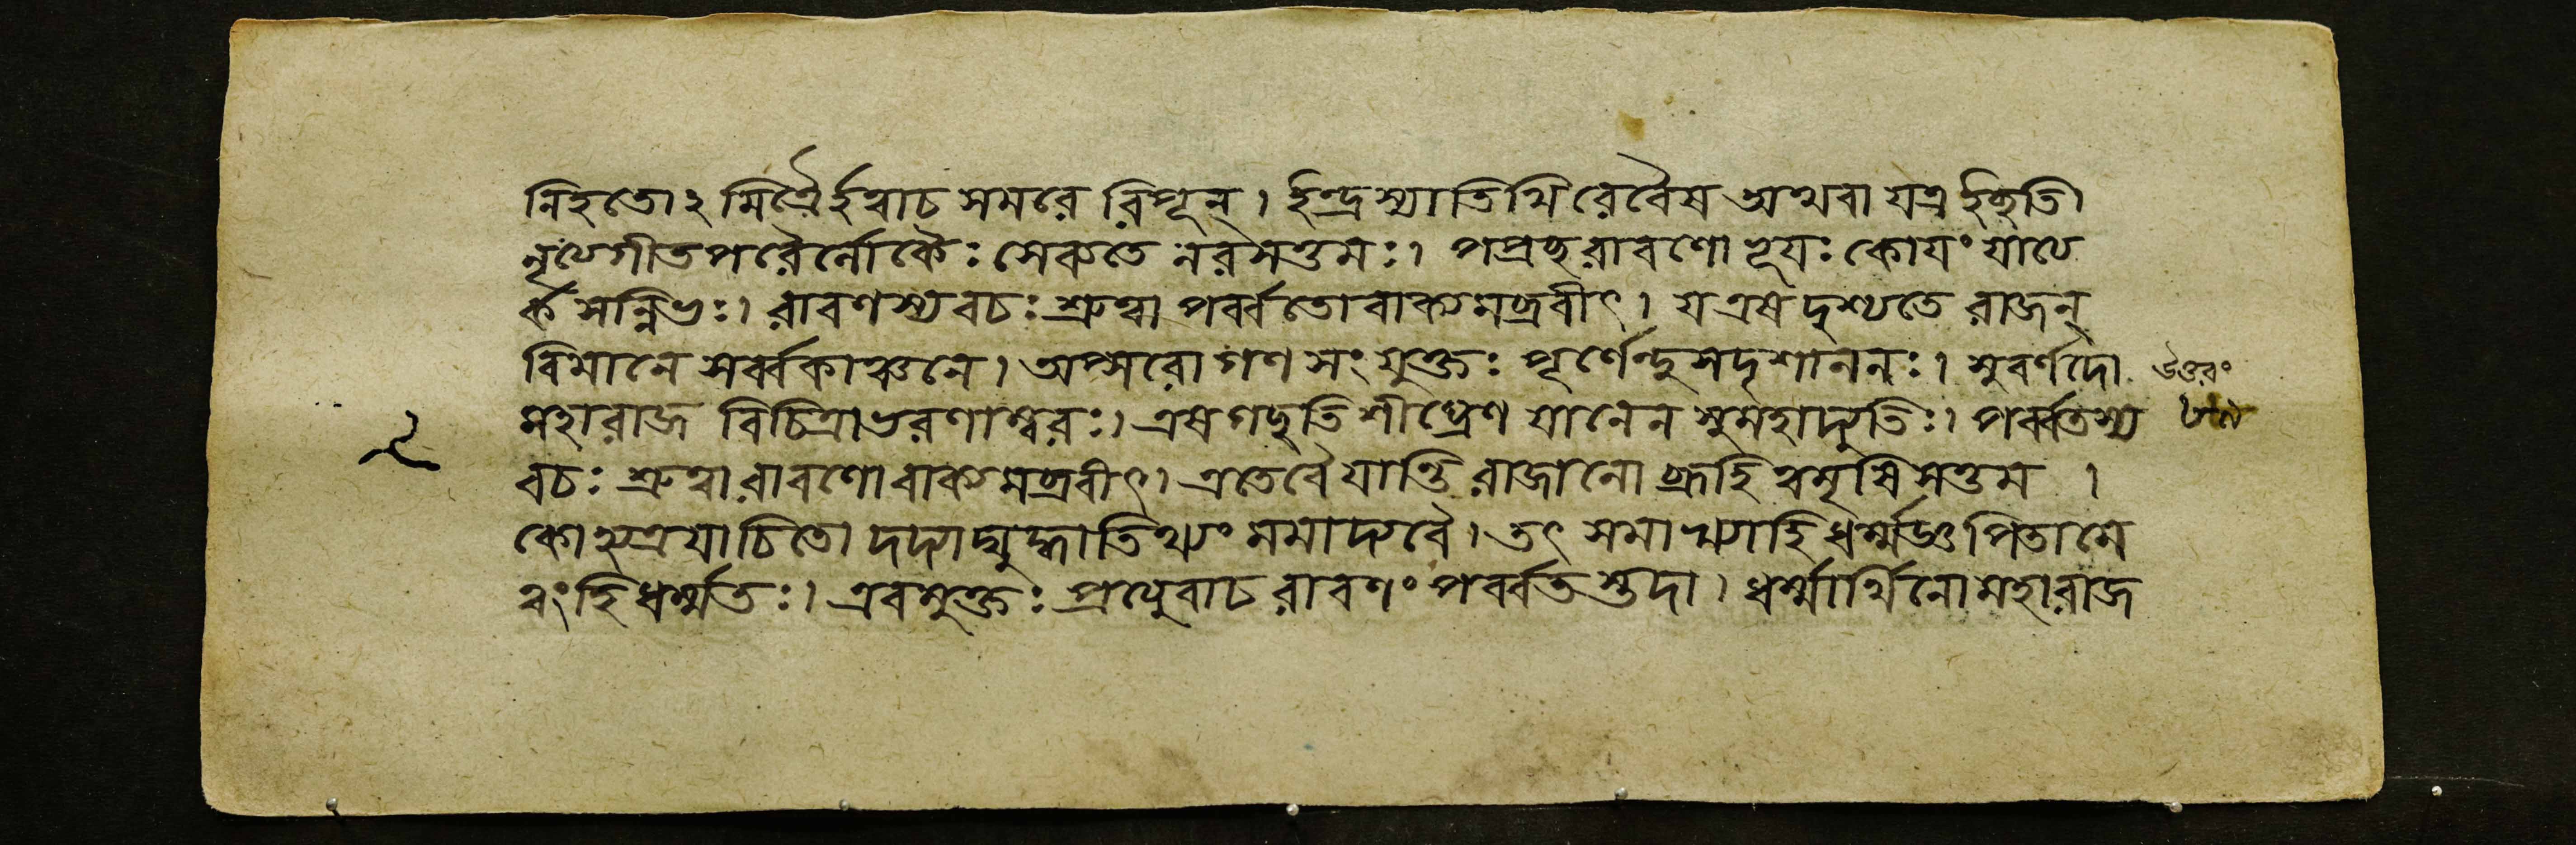 নিহতোঽমিত্রৈর্হত্বাচ সমরে রিপূন্। ইন্দ্রস্যাতিথিরেবৈষ অথবা যত্র ইচ্ছতি।
নৃত্যগীতপরৈর্লোকৈঃ সেব্যতে নরসত্তমঃ। পপ্রচ্ছ রাবণো ভূয়ঃ কোয়ং যাত্য
র্কসন্নিভঃ। রাবণস্য বচঃ শ্রুত্বা পর্ব্বতো বাক্যমব্রবীৎ। য এষ দৃশ্যতে রাজন্
বিমানে সর্ব্বকাঞ্চনে। অপ্সরোগণসংযুক্তঃ পূর্ণেন্দুসদৃশাননঃ। সুবর্ণদো
মহারাজ বিচিত্রাভরণাম্বরঃ। এষ গচ্ছতি শীঘ্রেণ যানেন সুমহাদ্যুতিঃ। পর্ব্বতস্য
বচঃ শ্রুত্বা রাবণো বাক্যমব্রবীৎ। এতে বৈ যান্তি রাজানো ব্রূহি ত্বমৃষিসত্তম ।
কোঽত্র যাচিতো দদ্যাদ্যুদ্ধাতিথ্যং মমাদ্য বৈ। তৎ সমাখ্যাহি ধর্ম্মজ্ঞ পিতা মে
ত্বং হি ধর্ম্মতঃ। এবমুক্তঃ প্রত্যুবাচ রাবণং পর্ব্বতস্তদা। স্বর্গার্থিনো মহারাজ
উত্তরং